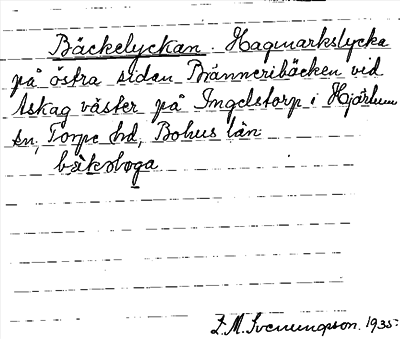 Bäckelyckan. Hagmarkslycka
på östra sidan Bränneribäcken vid
Askag väster på Ingelstorp i Hjärtum
sn, Torpe hd, Bohus län
L. M. Svenungson. 1935.